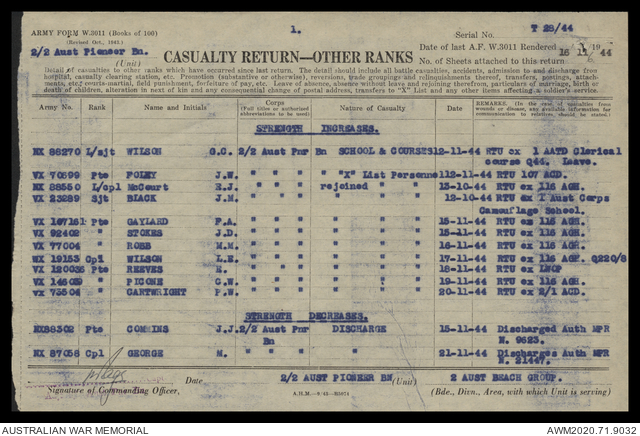 ARMY FORM W.3011 (Books of 100)
(Revised Oct., 1943.)
1.
Serial No. T 28/44
2/2 Aust Pioneer Bn.
(Unit)
CASUALTY RETURN—OTHER RANKS
Date of last A.F. W.3011 Rendered 16 11 44
No. of Sheets attached to this return
Detail of casualties to other ranks which have occurred since last return. The detail should include all battle casualties, accidents, admission to and discharge from
hospital, casualty clearing station, etc. Promotion (substantive or otherwise), reversions, trade groupings and relinquishments thereof, transfers, postings, attach-
ments, etc., courts-martial, field punishment, forfeiture of pay, etc. Leave of absence, absence without leave and rejoining therefrom, particulars of marriage, birth or
death of children, alteration in next of kin and any consequential change of postal address, transfers to "X" List and any other items affecting a soldier's service.
Army No. Rank Name and Initials Corps (Full titles or authorized abbreviations to be used) Nature of Casualty Date REMARKS. (In the case of casualties from wounds or disease, any available information for communication to relatives, should be stated.)
STRENGTH INCREASES.
NX 86270 L/sjt WILSON G.C. 2/2 Aust Pnr Bn SCHOOL & COURSES 12-11-44 RTU ex 1 AATD Clerical
course Q44. Leave.
VX 70599 Pte FOLEY J.W. " " " " "X" List Personnel 12-11-44 RTU 107 ACD.
NX 88550 L/cpl McCourt R.J. " " " rejoined " 13-10-44 RTU ex 116 AGH.
VX 23289 Sjt BLACK J.M. " " " " " 12-10-44 RTU ex 1 Aust Corps
Camouflage School.
VX 107181 Pte GAYLARD P.A. " " " " " 15-11-44 RTU ex 116 AGH.
VX 92402 " STOKES J.D. " " " " " 15-11-44 RTU ex 116 AGH.
VX 77004 " ROBB M.M. " " " " " 16-11-44 RTU ex 116 AGH.
WX 19153 Cpl WILSON L.E. " " " " " 17-11-44 RTU ex 116 AGH. Q220/8
VX 120036 Pte REEVES E. " " " " " 18-11-44 RTU ex LWOP
VX 146089 " PICONE G.W. " " " " " 19-11-44 RTU ex 116 AGH.
VX 73504 " CARTWRIGHT P.W. " " " " " 20-11-44 RTU ex 2/1 ACD.
STRENGTH DECREASES.
NX88302 Pte COMMINS J.J. 2/2 Aust Pnr DISCHARGE 15-11-44 Discharged Auth MPR
Bn N. 9623.
NX 87058 Cpl GEORGE M. " " " 21-11-44 Discharges Auth MPR
N. 21447.
Date 2/2 AUST PIONEER BN (Unit) 2 AUST BEACH GROUP.
Signature of Commanding Officer, (Bde., Divn., Area, with which Unit is serving)
AUSTRALIAN WAR MEMORIAL AWM2020.71.9032